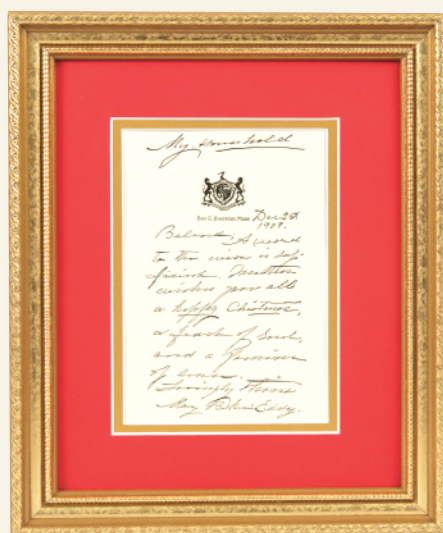 My Household
Box G Brookline, Mass.
Dec 25
1909.
Beloved: A word
to the wise is suf-
ficient. Mother
wishes you all
a happy Christmas,
a feast of Soul,
and a famine
of sense.
Lovingly thine
Mary Baker Eddy.